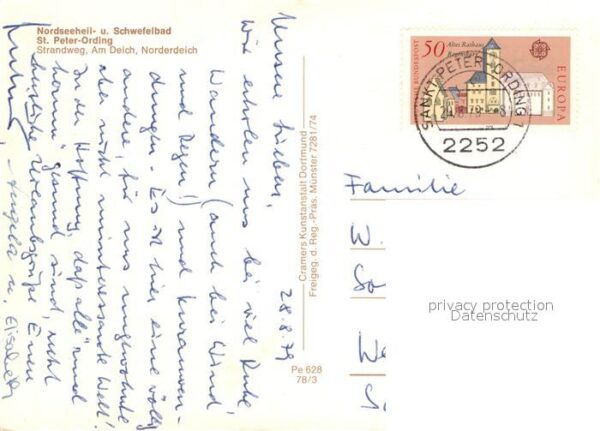 Nordseeheil- u. Schwefelbad
St. Peter-Ording
Strandweg, Am Deich, Norderdeich
28.8.79
Meine Lieben,
Wir erholen uns bei viel Ruhe
Wandern (auch bei Wind
und Regen!) und Kuranwen-
dungen. Es ist hier eine völlig
andere, für uns ungewohnte
aber nicht uninteressante Welt!
In der Hoffnung, daß "alle" und
gesund sind, recht
herzliche Urlaubsgrüße Euch
Angela u. Elisabeth
Cramers Kunstanstalt Dortmund
Freigeg. d. Reg.-Präs. Münster 7281/74
Pe 628
78/3
50
Altes Rathaus
Regensburg
DEUTSCHE BUNDESPOST
EUROPA
SANKT PETER-ORDING 1
2252
Familie
W.
privacy protection
Datenschutz